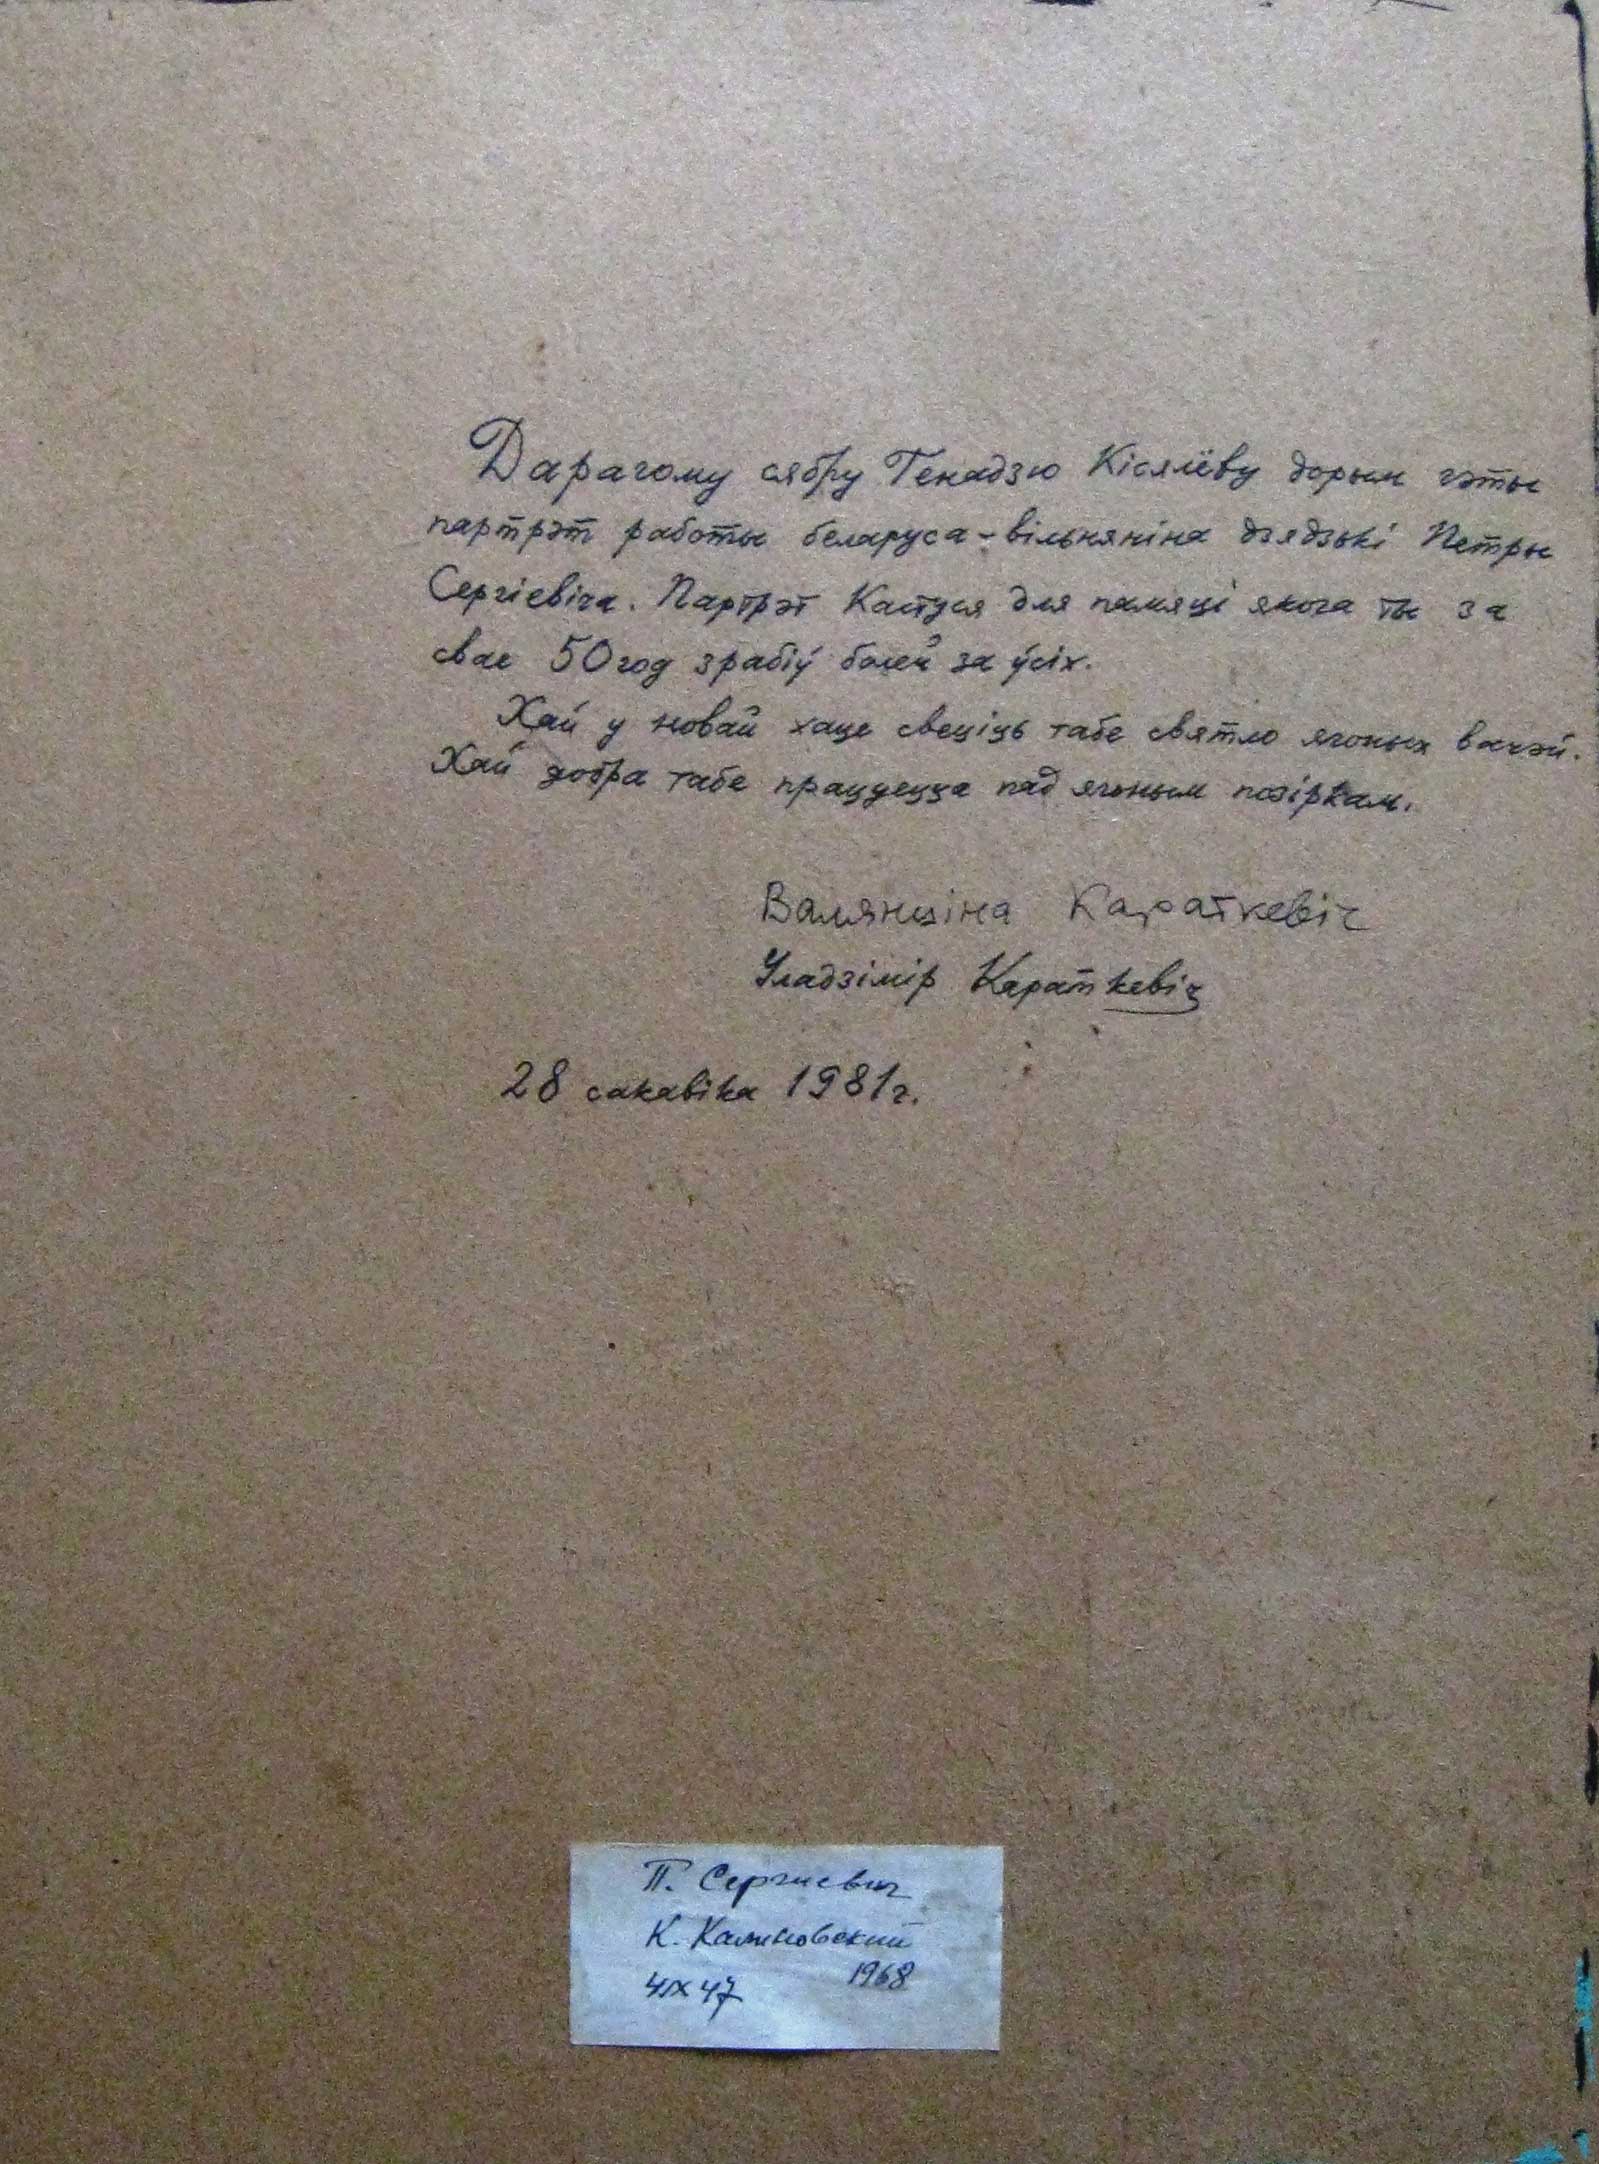 Дарагому сябру Генадзю Кісялёву дорым гэты
партрэт работы беларуса-вільняніна дзядзькі Петры
Сергіевіча. Партрэт Кастуся для памяці якога ты за
свае 50 год зрабіў болей за ўсіх.
Хай у новай хаце свеціць табе святло ягоных вачэй.
Хай добра табе працуецца пад ягоным позіркам.
Валянціна Караткевіч
Уладзімір Караткевіч
28 сакавіка 1981г.
П. Сергиевич
К. Калиновский
41х47 1968